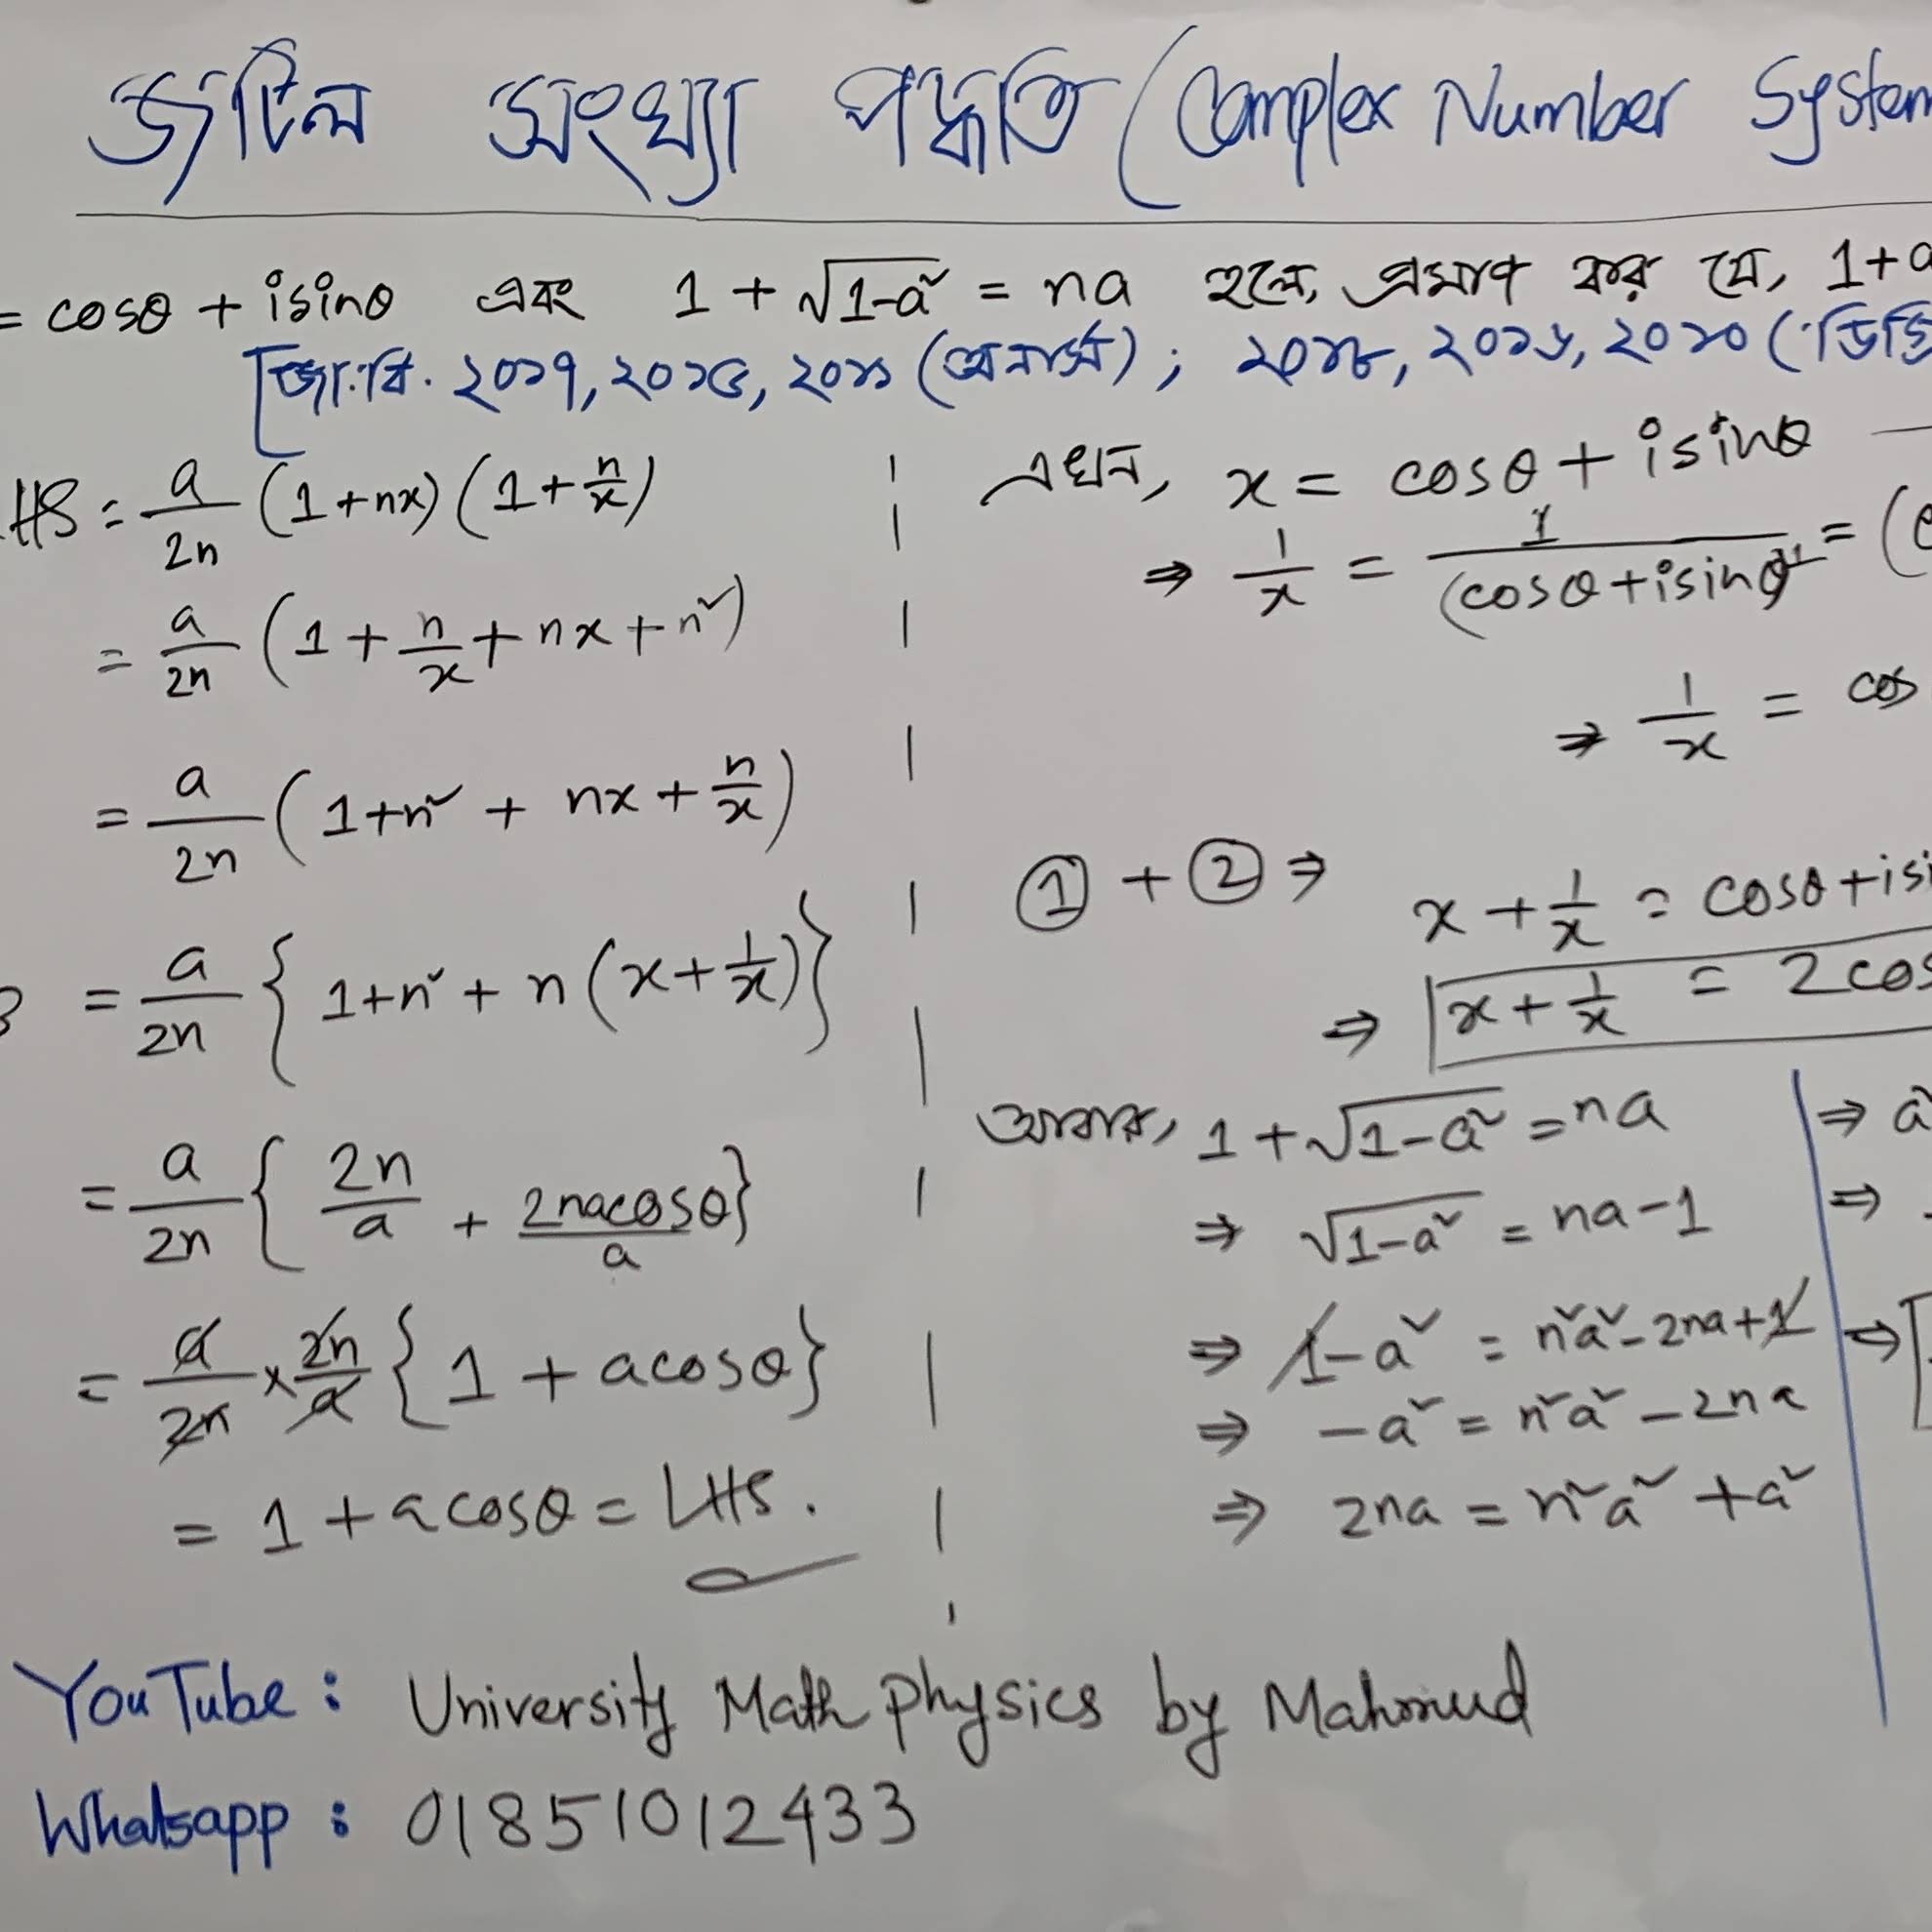 জটিল সংখ্যা পদ্ধতি (Complex Number System
= cosθ + isinθ এবং 1 + √(1-a²) = na হলে, প্রমাণ কর যে, 1+a
[জা.বি. ২০১৭, ২০১৪, ২০১১ (অনার্স) ; ২০১৮, ২০১৬, ২০১০ (ডিগ্রি
HS = a/2n (1+nx) (1+n/x)
= a/2n (1 + n/x + nx + n²)
= a/2n (1+n² + nx + n/x)
= a/2n { 1+n² + n (x+1/x)}
= a/2n { 2n/a + 2nacosθ/a}
= a/2n × 2n/a {1 + acosθ}
= 1 + acosθ = LHS.
এখন, x = cosθ + isinθ
⇒ 1/x = 1/(cosθ+isinθ)¹ = (c
⇒ 1/x = cos
① + ② ⇒
x + 1/x = cosθ+isi
⇒ x + 1/x = 2cos
আবার, 1+√(1-a²) = na
⇒ √(1-a²) = na-1
⇒ 1-a² = n²a²-2na+1
⇒ -a² = n²a² - 2na
⇒ 2na = n²a² + a²
⇒ a²
⇒
⇒
YouTube : University Math Physics by Mahmud
Whatsapp : 01851012433